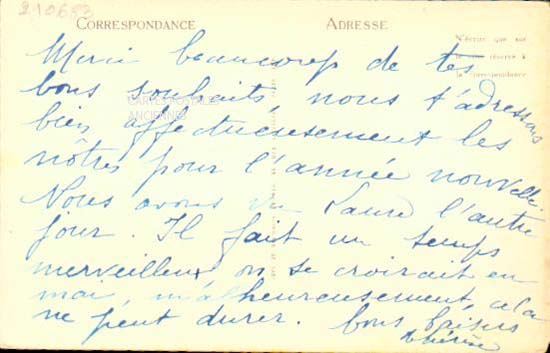 210653
CORRESPONDANCE
ADRESSE
N'écrire que sur
le côté réservé à
la correspondance
Merci beaucoup de tes
bons souhaits, nous t'adressons
bien affectueusement les
nôtres pour l'année nouvelle
Nous avons vu Laure l'autre
jour. Il fait un temps
merveilleux on se croirait en
mai, malheureusement, cela
ne peut durer. bons baisers
CARTES POSTALES
ANCIENNES